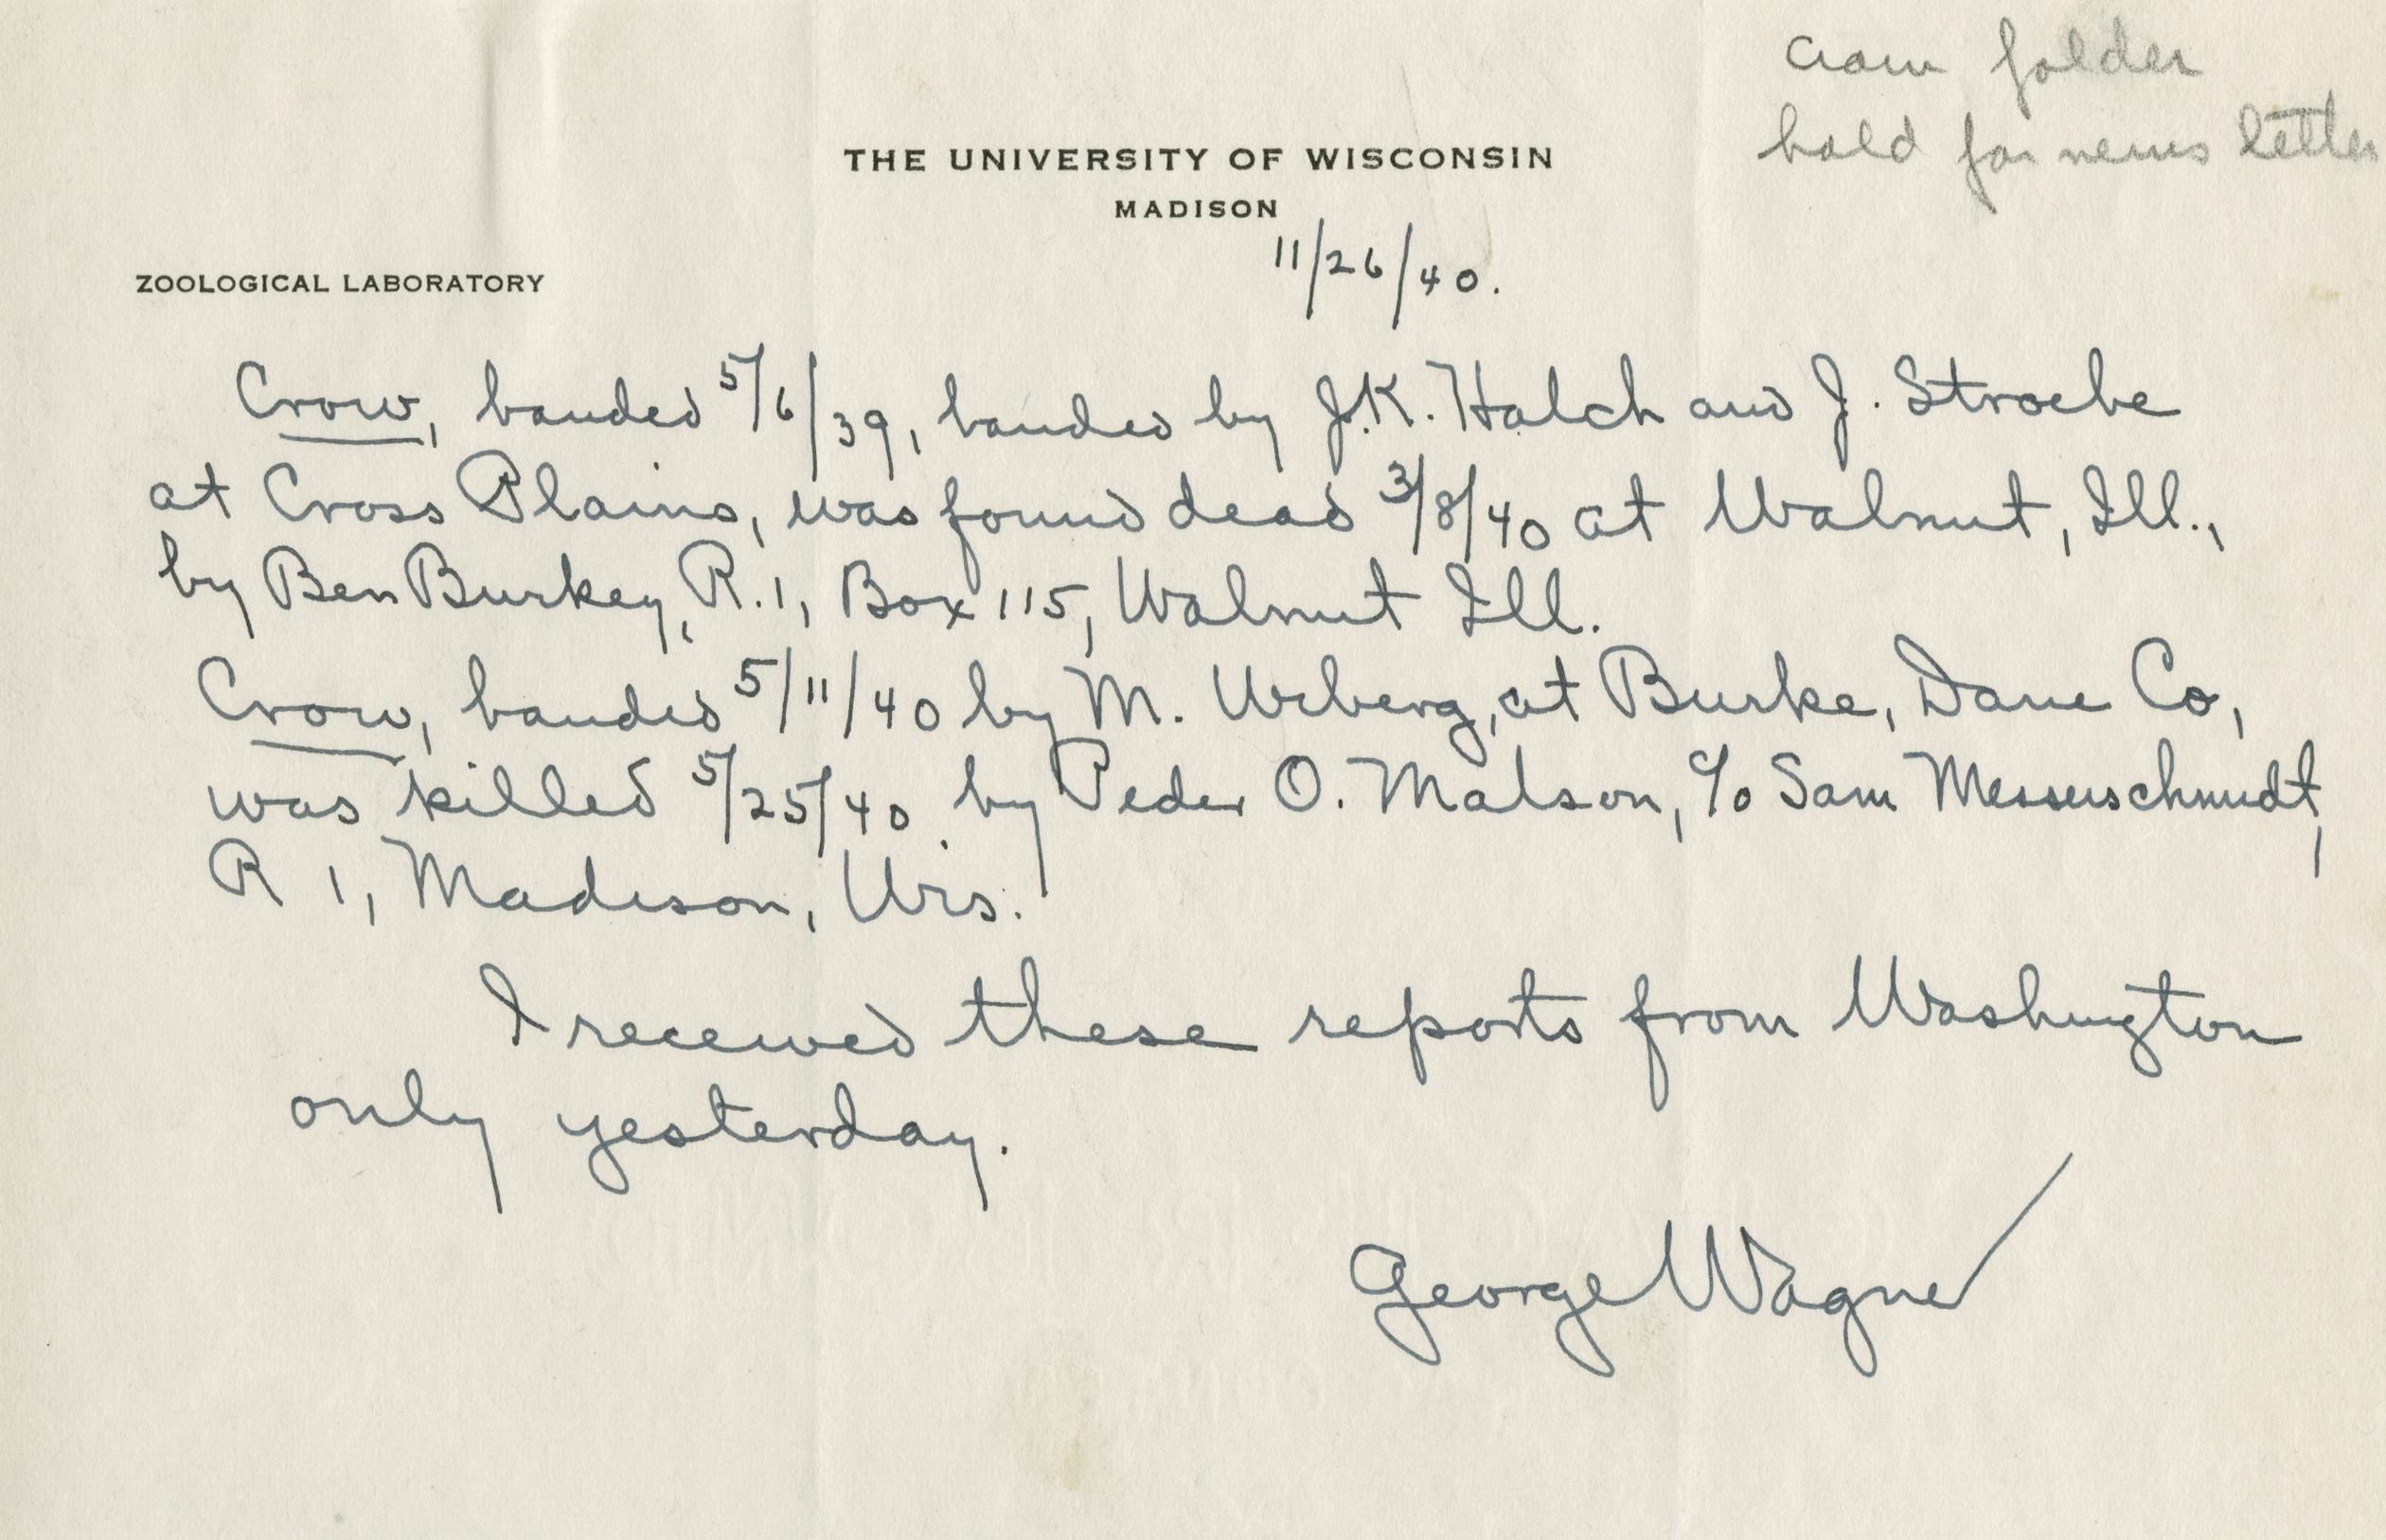 crow folder
hold for news letter
THE UNIVERSITY OF WISCONSIN
MADISON
11/26/40.
ZOOLOGICAL LABORATORY
Crow, banded 5/6/39, banded by J.K. Halch and J. Stroebe
at Cross Plains, was found dead 3/8/40 at Walnut, Ill.,
by Ben Burkey, R.1, Box 115, Walnut Ill.
Crow, banded 5/11/40 by M. Urberg, at Burke, Dane Co,
was killed 5/25/40 by Peder O. Malson, c/o Sam Messerschmidt,
R 1, Madison, Wis.
I received these reports from Washington
only yesterday.
George Wagner